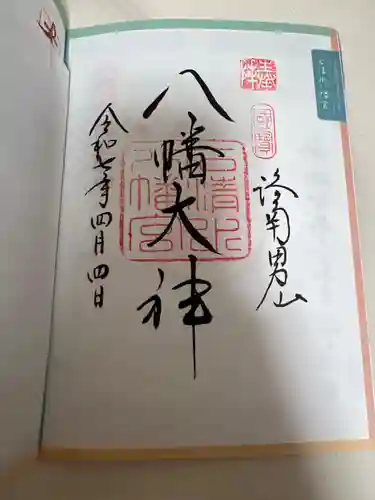 奉拝
国宝
洛南男山
八幡大神
石清水
八幡宮
令和七年四月四日